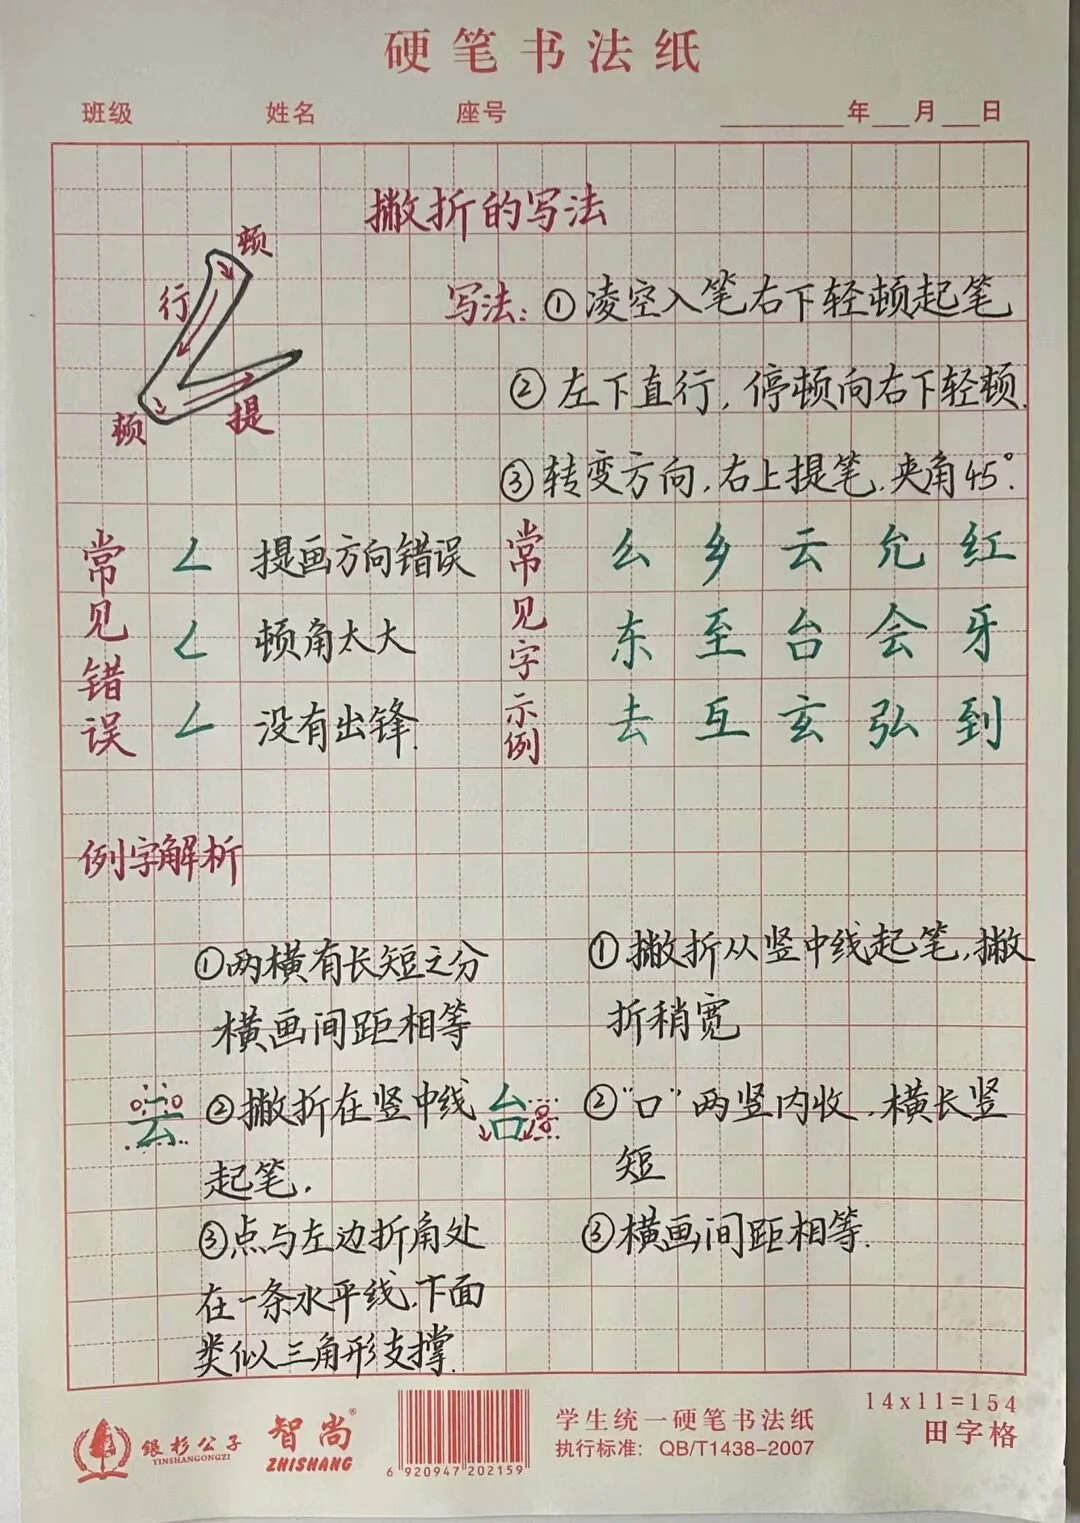 硬笔书法纸
班级 姓名 座号 年 月 日
撇折的写法
顿
行
顿
提
写法：①凌空入笔右下轻顿起笔
②左下直行，停顿向右下轻顿.
③转变方向，右上提笔.夹角45°.
常见错误
提画方向错误
顿角太大
没有出锋.
常见字示例
么 乡 云 允 红
东 至 台 会 牙
去 互 玄 弘 到
例字解析
云
①两横有长短之分
横画间距相等
②撇折在竖中线
起笔.
③点与左边折角处
在一条水平线.下面
类似三角形支撑.
台
①撇折从竖中线起笔,撇
折稍宽
②"口"两竖内收.横长竖
短
③横画间距相等.
银杉公子
YINSHANGONGZI
智尚®
ZHISHANG
6 920947 202159
学生统一硬笔书法纸
执行标准：QB/T1438-2007
14x11=154
田字格